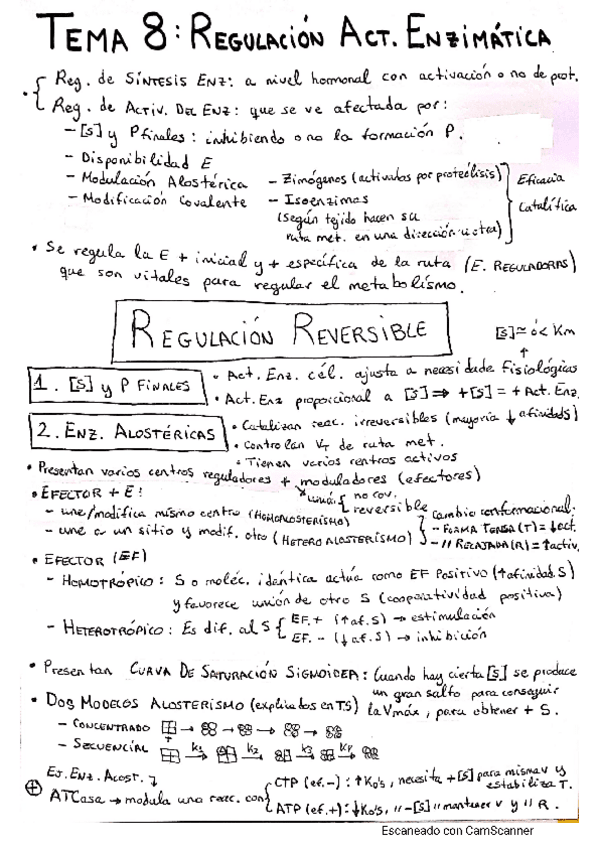 TEMA 8: REGULACIÓN ACT. ENZIMÁTICA
Reg. de SÍNTESIS ENZ: a nivel hormonal con activación o no de prot.
Reg. de ACTIV. DEL ENZ: que se ve afectada por:
- [S] y P finales: inhibiendo o no la formación P.
- Disponibilidad E
- Modulación Alostérica - Zimógenos (activados por proteólisis) Eficacia
- Modificación Covalente - Isoenzimas Catalítica
(según tejido hacen su
ruta met. en una dirección u otra)
• Se regula la E + inicial y + específica de la ruta (E. REGULADORAS)
que son vitales para regular el metabolismo.
REGULACIÓN REVERSIBLE
[S] ≃ ó < Km
1. [S] y P FINALES
• Act. Enz. cél. ajusta a necesidade fisiológicas
• Act. Enz proporcional a [S] ⇒ +[S] = + Act. Enz.
2. ENZ. ALOSTÉRICAS
• Catalizan reac. irreversibles (mayoría ↓ afinidad S)
• Controlan VT de ruta met.
• Tienen varios centros activos
• Presentan varios centros reguladores + moduladores (efectores)
• EFECTOR + E: unión no cov. reversible
- une/modifica mismo centro (HOMOALOSTERISMO) cambio conformacional:
- une a un sitio y modif. otro (HETEROALOSTERISMO) - FORMA TENSA (T) = ↓ act.
- // RELAJADA (R) = ↑ activ.
• EFECTOR (EF)
- HOMOTRÓPICO: S o moléc. idéntica actúa como EF Positivo (↑ afinidad S)
y favorece unión de otro S (cooperatividad positiva)
- HETEROTRÓPICO: Es dif. al S EF. + (↑ af. S) → estimulación
EF. - (↓ af. S) → inhibición
• Presentan CURVA DE SATURACIÓN SIGMOIDEA: Cuando hay cierta [S] se produce
un gran salto para conseguir
• DOS MODELOS ALOSTERISMO (explicados en TS) la Vmáx, para obtener + S.
- CONCENTRADO
- SECUENCIAL K1 K2 K3 K4
EJ. ENZ. ALOST.
⊕ ATCasa → modula una reac. con CTP (ef. -): ↑ K0's, necesita +[S] para misma v y
estabiliza T.
ATP (ef. +): ↓ K0's, // -[S] // mantener v y // R.
Escaneado con CamScanner